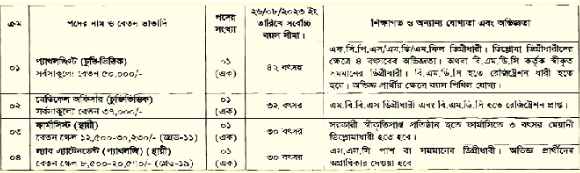 ক্রম
পদের নাম ও বেতন ভাতাদি
পদের সংখ্যা
২৬/০৮/২০২৩ ইং তারিখে সর্বোচ্চ বয়স সীমা।
শিক্ষাগত ও অন্যান্য যোগ্যতা এবং অভিজ্ঞতা
০১
প্যাথলজিস্ট (চুক্তি-ভিত্তিক)
সর্বসাকুল্যে বেতন ৫০,০০০/-
০১
(এক)
৪২ বৎসর
এফ.সি.পি.এস/এম.ডি/এম.ফিল ডিগ্রীধারী। ডিপ্লোমা ডিগ্রীধারীদের
ক্ষেত্রে ৪ বৎসরের অভিজ্ঞতা। অথবা বি.এম.ডি.সি কর্তৃক স্বীকৃত
সমমানের ডিগ্রীধারী। বি.এম.ডি.সি হতে রেজিস্ট্রেশন ধারী হতে
হবে। অভিজ্ঞ প্রার্থীর ক্ষেত্রে বয়স শিথিল যোগ্য।
০২
মেডিকেল অফিসার (চুক্তিভিত্তিক)
সর্বসাকুল্যে বেতন ৩৭,০০০/-
০১
(এক)
৩২ বৎসর
এম.বি.বি.এস ডিগ্রীধারী এবং বি.এম.ডি.সি হতে রেজিস্ট্রেশন প্রাপ্ত।
০৩
ফার্মাসিস্ট (স্থায়ী)
বেতন স্কেল ১২,৫০০-৩০,২৩০/- (গ্রেড-১১)
০১
(এক)
৩০ বৎসর
সরকারী স্বীকৃতিপ্রাপ্ত প্রতিষ্ঠান হতে ফার্মাসিতে ৩ বৎসর মেয়াদী
ডিপ্লোমাধারী হতে হবে।
০৪
ল্যাব এ্যাটেনডেন্ট (প্যাথলজি) (স্থায়ী)
বেতন স্কেল ৮,৫০০-২০,৫৭০/- (গ্রেড-১৯)
০১
(এক)
৩০ বৎসর
এস.এস.সি পাশ বা সমমানের ডিগ্রীধারী। অভিজ্ঞ প্রার্থীদের
অগ্রাধিকার দেওয়া হবে